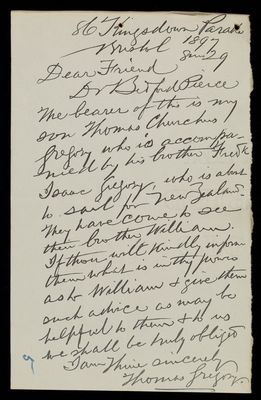 86 Kingsdown Parade
Bristol 1897
9
Dear Friend
Dr Bedford Pierce
The bearer of this is my
son Thomas Churches
Gregory who is accompa-
nied by his brother Fredk
Isaac Gregory, who is about
to sail for New Zealand.
They have come to see
their brother William.
If thou wilt kindly inform
them what is in thy power
as to William & give them
such advice as may be
helpful to them & to us
we shall be truly obliged
I am Thine sincerely
Thomas Gregory.